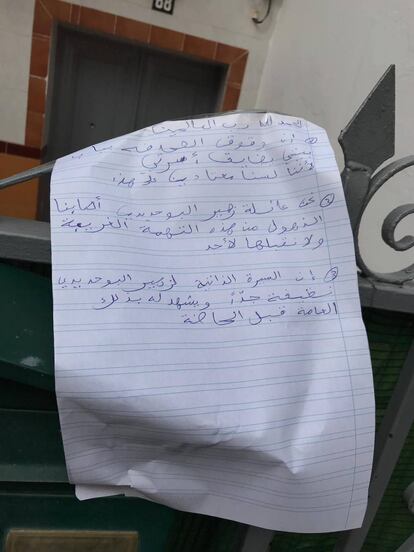 88
الحمد لله رب العالمين
① إن وقوف الصحافة بباب
بيتي يضايق أسرتي
لأننا لسنا معتادين على هذا
② نحن عائلة زهير البوحديدي أصابنا
الذهول من هذه التهمة الغريبة
ولا نقبلها لأحد
③ إن السيرة الذاتية لزهير البوحديدي
نظيفة جداً ويشهد له بذلك
العامة قبل الخاصة